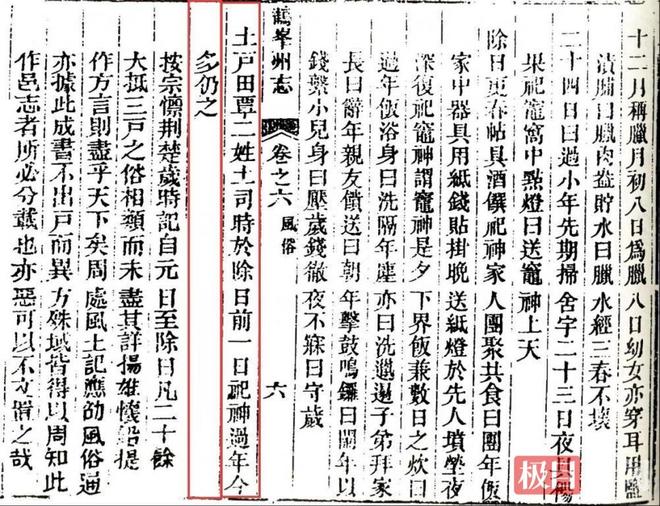 十二月稱臘月初八日爲臘八日幼女亦穿耳用鹽
漬曰臘肉盎貯水曰臘水經三春不壞
二十四日曰過小年先期掃舍宇二十三日夜具餳
果祀竈窩中點燈曰送竈神上天
除日更春帖具酒饌祀神家人團聚共食曰團年飯
家中器具用紙錢貼掛晚送紙燈於先人墳塋夜
深復祀竈神謂竈神是夕下界飯兼數日之炊曰
過年飯浴身曰洗隔年塵亦曰洗邋遢子弟拜家
長曰辭年親友饋送曰朝年擊鼓鳴鑼曰鬧年以
錢繫小兒身曰壓歲錢徹夜不寐曰守歲
鶴峯州志
卷之六
風俗
六
土戶田覃二姓土司時於除日前一日祀神過年今
多仍之
按宗懍荆楚歲時記自元日至除日凡二十餘
大抵三戶之俗相類而未盡其詳揚雄懷鉛提
作方言則盡乎天下矣周處風土記應劭風俗通
亦據此成書不出戶而異方殊域皆得以周知此
作邑志者所必分載也亦惡可以不文之哉
极目